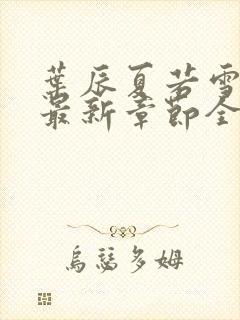 葉辰夏若雪
最新章節全
烏瑟多姆